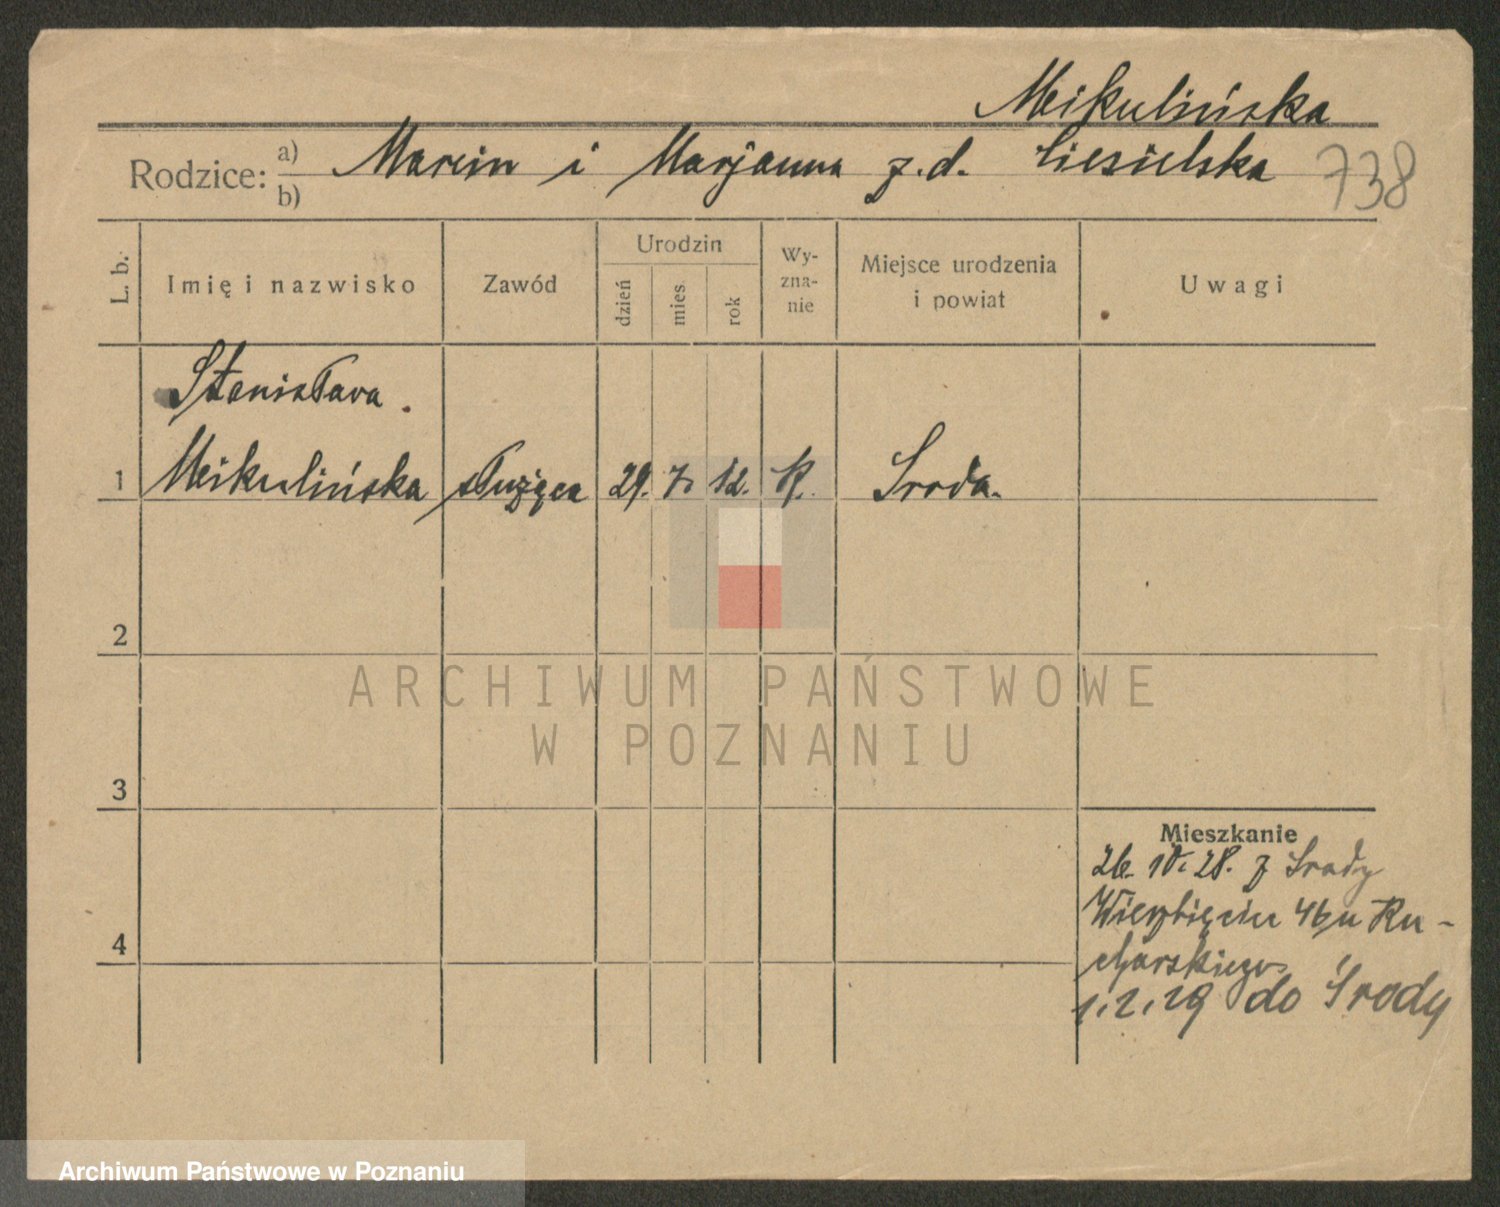 Mikulińska
Rodzice: a) b) Marcin i Marjanna z.d. Ciesielska 738
L. b.
Imię i nazwisko
Zawód
Urodzin
dzień
mies.
rok
Wy-
zna-
nie
Miejsce urodzenia
i powiat
Uwagi
Stanisława.
1 Mikulińska służąca 29. 7. 12. K. Środa.
2
ARCHIWUM PAŃSTWOWE
W POZNANIU
3
Mieszkanie
26. 10. 28. z Środy
Wierzbięcice 46 u
4
1.2.29 do Środy
Archiwum Państwowe w Poznaniu